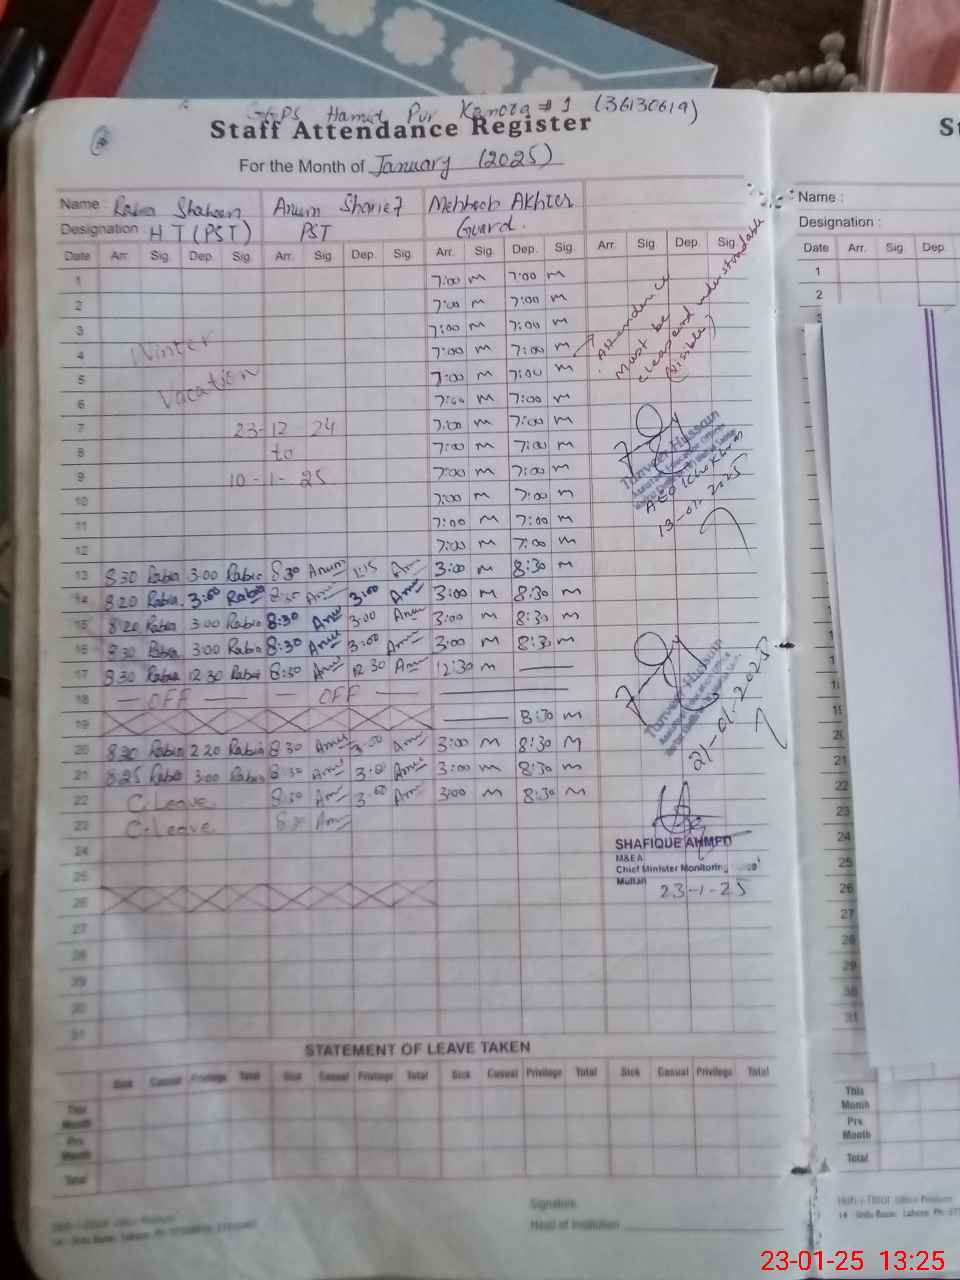 GGPS Hamid Pur Kanora # 1 (36130619)
Staff Attendance Register
For the Month of January (2025)
Name : Rabia Shaheen Anum Sharief Mehboob Akhter
Designation : HT (PST) PST Guard
Date Arr. Sig. Dep. Sig. Arr. Sig. Dep. Sig. Arr. Sig. Dep. Sig. Arr. Sig. Dep. Sig.
1 7:00 m 7:00 m
2 7:00 m 7:00 m
3 7:00 m 7:00 m
4 Winter 7:00 m 7:00 m
5 Vacation 7:00 m 7:00 m
6 7:00 m 7:00 m
7 23-12-24 7:00 m 7:00 m
8 to 7:00 m 7:00 m
9 10-1-25 7:00 m 7:00 m
10 7:00 m 7:00 m
11 7:00 m 7:00 m
12 7:00 m 7:00 m
13 8 30 Rabia 3:00 Rabia 8:30 Anum 1:15 Anum 3:00 m 8:30 m
14 8 20 Rabia 3:00 Rabia 8:30 Anum 3:00 Anum 3:00 m 8:30 m
15 8 20 Rabia 3:00 Rabia 8:30 Anum 3:00 Anum 3:00 m 8:30 m
16 8 30 Rabia 3:00 Rabia 8:30 Anum 3:00 Anum 3:00 m 8:30 m
17 8 30 Rabia 12 30 Rabia 8:30 Anum 12 30 Anum 12:30 m
18 — OFF — — OFF —
19 8:30 m
20 8 30 Rabia 2 20 Rabia 8 30 Anum 3:00 Anum 3:00 m 8:30 m
21 8 25 Rabia 3:00 Rabia 8:30 Anum 3:00 Anum 3:00 m 8:30 m
22 C.Leave 8:30 Anum 3:00 Anum 3:00 m 8:30 m
23 C.Leave 8:30 Anum
24
25
26
27
28
29
30
31
Attendance
Must be
clear and understandable
(visible)
Tanveer Hussain
AEO Khokhran
13-01-2025
Tanveer Hussain
21-01-2025
SHAFIQUE AHMED
M&EA
Chief Minister Monitoring
Multan
23-1-25
STATEMENT OF LEAVE TAKEN
Sick Casual Privilege Total Sick Casual Privilege Total Sick Casual Privilege Total Sick Casual Privilege Total
This Month
Prv. Month
Total
Signature
Head of Institution
St
Name :
Designation :
Date Arr. Sig. Dep.
1
2
3
19
20
21
22
23
24
25
26
27
28
29
30
31
This Month
Prv. Month
Total
14 - Urdu Bazar, Lahore. Ph:
23-01-25 13:25